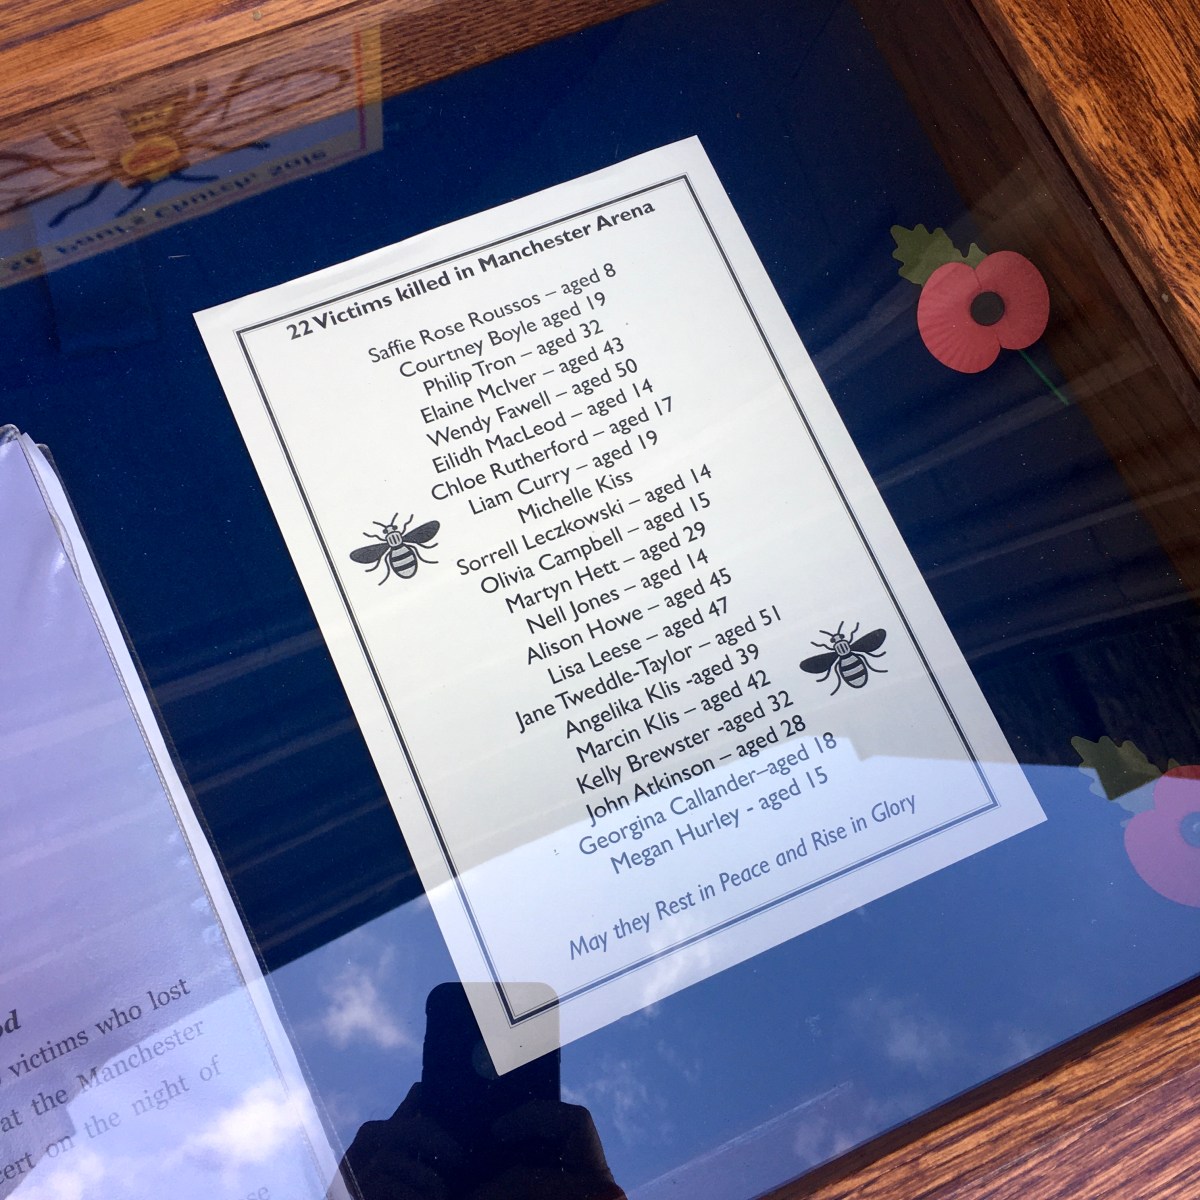 22 Victims killed in Manchester Arena
Saffie Rose Roussos – aged 8
Courtney Boyle aged 19
Philip Tron – aged 32
Elaine McIver – aged 43
Wendy Fawell – aged 50
Eilidh MacLeod – aged 14
Chloe Rutherford – aged 17
Liam Curry – aged 19
Michelle Kiss
Sorrell Leczkowski – aged 14
Olivia Campbell – aged 15
Martyn Hett – aged 29
Nell Jones – aged 14
Alison Howe – aged 45
Lisa Leese – aged 47
Jane Tweddle-Taylor – aged 51
Angelika Klis -aged 39
Marcin Klis – aged 42
Kelly Brewster -aged 32
John Atkinson – aged 28
Georgina Callander–aged 18
Megan Hurley - aged 15
May they Rest in Peace and Rise in Glory
victims who lost
at the Manchester
on the night of